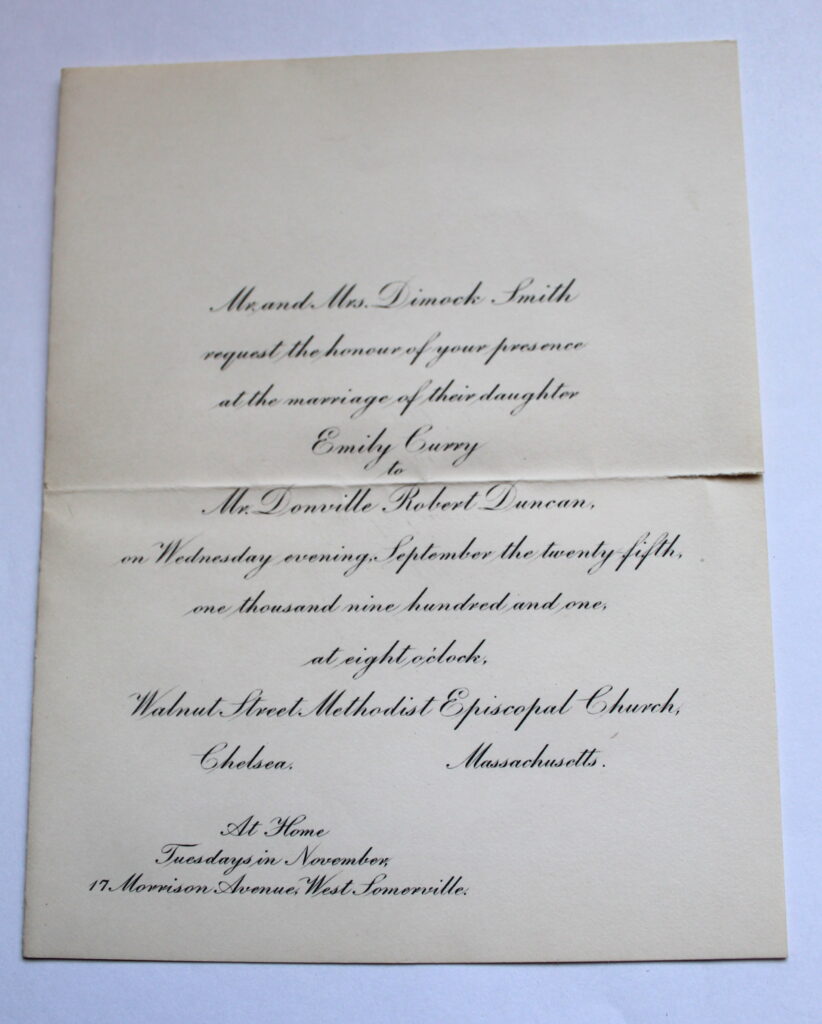 Mr. and Mrs. Dimock Smith
request the honour of your presence
at the marriage of their daughter
Emily Curry
to
Mr. Donville Robert Duncan,
on Wednesday evening, September the twenty-fifth,
one thousand nine hundred and one,
at eight o'clock,
Walnut Street Methodist Episcopal Church,
Chelsea. Massachusetts.
At Home
Tuesdays in November,
17 Morrison Avenue, West Somerville.